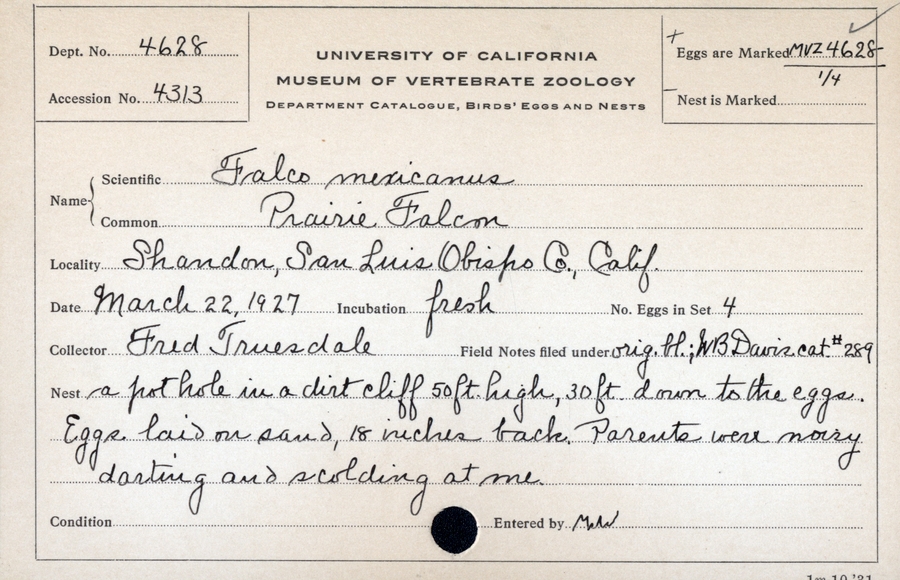 Dept. No. 4628
Accession No. 4313
UNIVERSITY OF CALIFORNIA
MUSEUM OF VERTEBRATE ZOOLOGY
DEPARTMENT CATALOGUE, BIRDS' EGGS AND NESTS
+
Eggs are Marked MVZ 4628
1/4
Nest is Marked
Name { Scientific Falco mexicanus
Common Prairie Falcon
Locality Shandon, San Luis Obispo Co., Calif.
Date March 22, 1927 Incubation fresh No. Eggs in Set 4
Collector Fred Truesdale Field Notes filed under orig. bl.; WB Davis cat. #289
Nest a pot hole in a dirt cliff 50 ft. high, 30 ft. down to the eggs.
Eggs laid on sand, 18 inches back. Parents were noizy
darting and scolding at me.
Condition Entered by
1m 10 '31